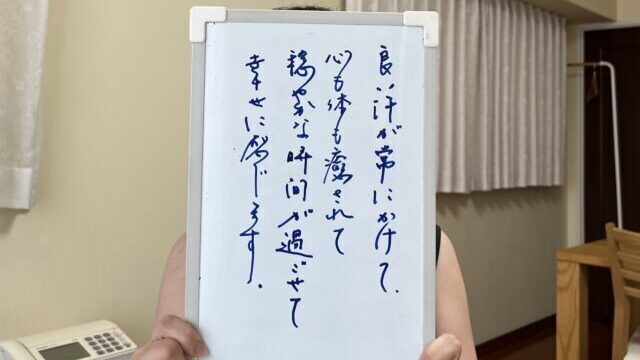 良い汗が常にかけて、
心も体も癒されて
穏やかな時間が過ごせて
幸せに感じます。